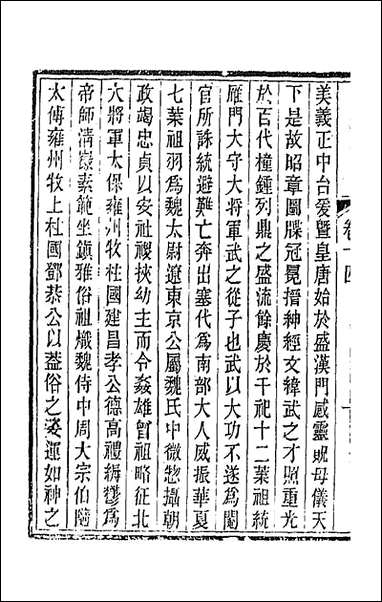 美義正中台爰暨皇唐始於盛漢門感靈貺母儀天
下是故昭章圖牒冠冕搢神經文緯武之才照重光
於百代橦鍾列鼎之盛流餘慶於千祀十二葉祖統
雁門大守大將軍武之從子也武以大功不遂為閹
官所誅統避難亡奔出塞代為南部大人威振華夏
七葉祖羽為魏太尉遼東京公屬魏氏中微惣攝朝
政竭忠貞以安社稷挾幼主而令姦雄曾祖略征北
大將軍太保雍州牧柱國建昌孝公德高禮縟鬱為
帝師清徽素範坐鎮雅俗祖熾魏侍中周大宗伯隨
太傅雍州牧上柱國鄧恭公以益俗之姿運如神之
卷十四